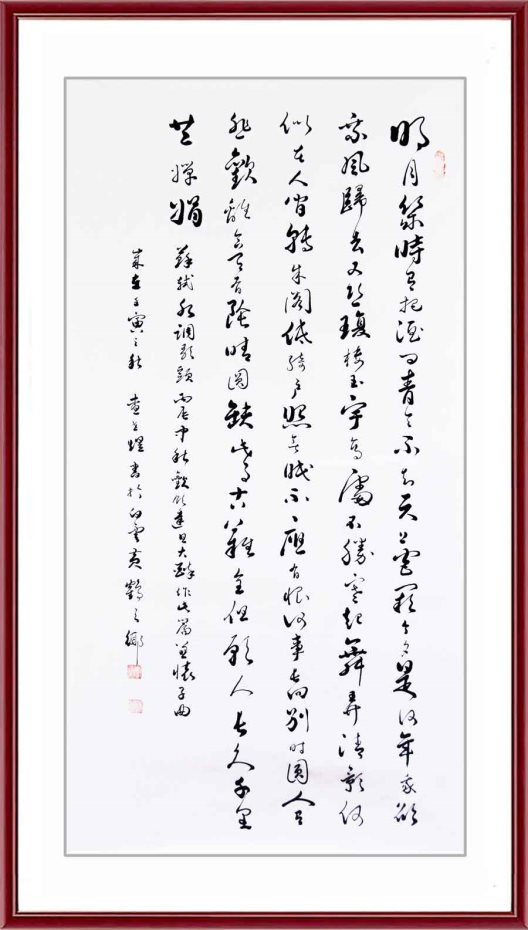 明月幾時有把酒問青天不知天上宮闕今夕是何年我欲
乘風歸去又恐瓊樓玉宇高處不勝寒起舞弄清影何
似在人間轉朱閣低綺戶照無眠不應有恨何事長向別时圓人有
悲歡離合月有陰晴圓缺此事古難全但願人長久千里
共嬋娟 蘇軾水調歌頭丙辰中秋歡飲達旦大醉作此篇兼懷子由
歲在壬寅之秋 書於白雲黃鶴之鄉